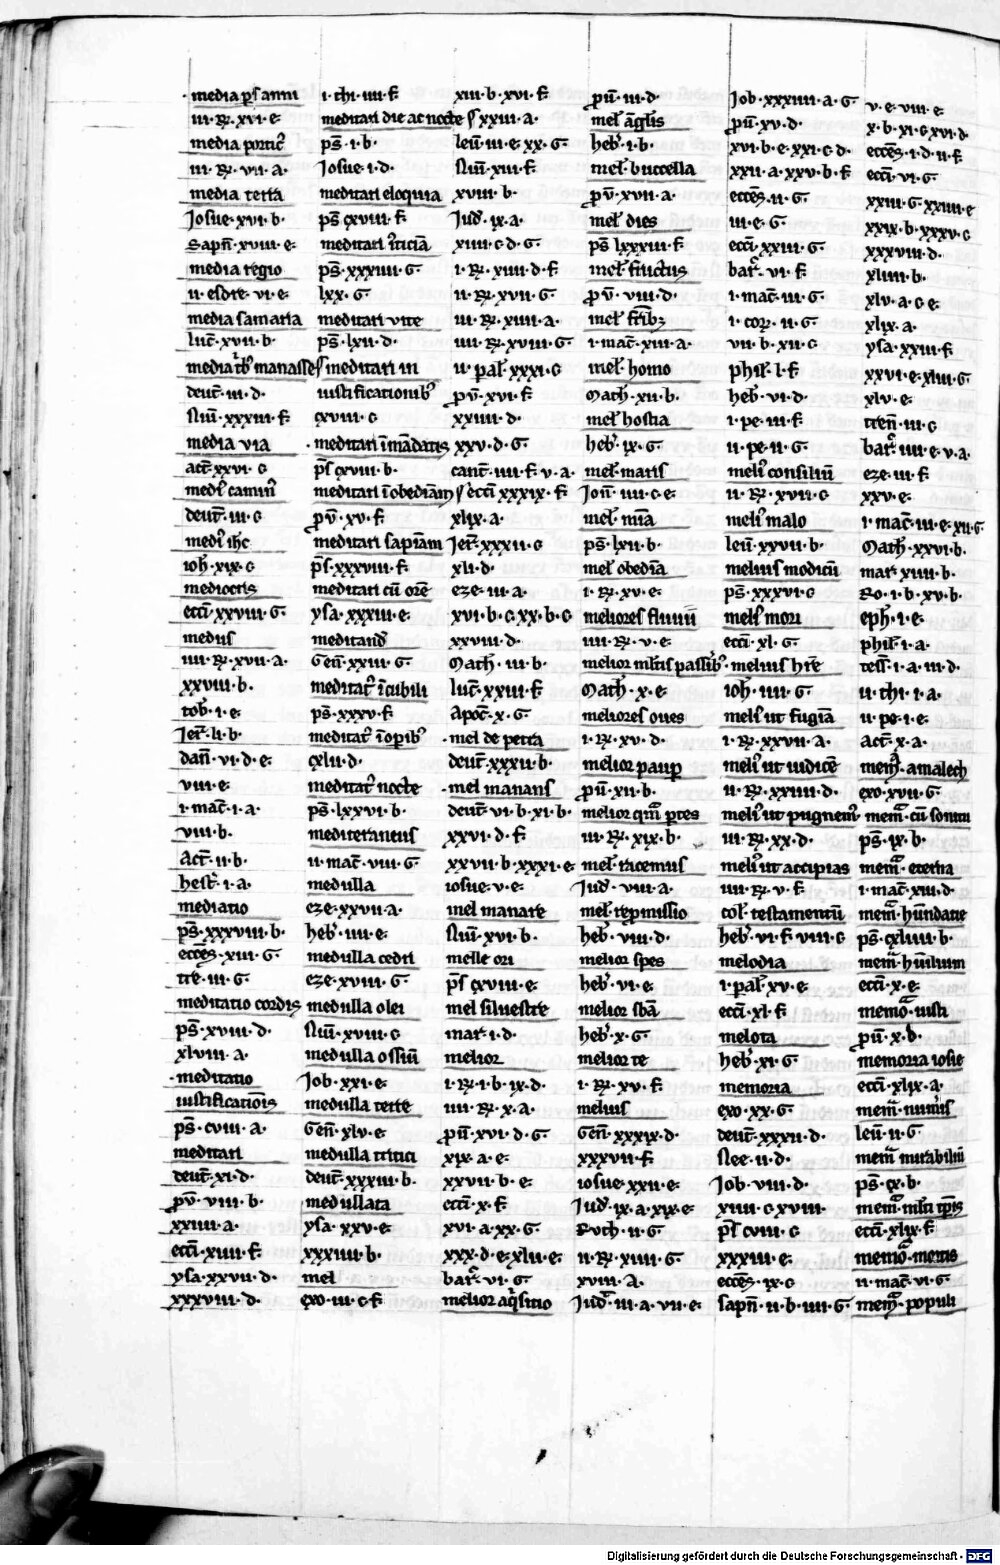 media ps͛ anni
iii·Rꝝ·xvi·e·
media portic͛
iii·Rꝝ·vii·a·
media terra
Josue·xvi·b·
Sapn̄·xviii·e·
media regio
ii·esdre·vi·e·
media samaria
luc̄·xvii·b·
media tb͛ manasse
deut̄·iii·d·
Nūi·xxxiii·f·
media via
act̄·xxvi·c
medi͛ camini
deut̄·iii·c
medi͛ ihc
ioh̄·xix·c
mediocris
ecci̅·xxviii·G·
medus
iiii·Rꝝ·xvii·a·
xxviii·b·
tob̄·i·e·
Jer̄·li·b·
dan̄·vi·d·e·
viii·e·
i·mac̄·i·a·
viii·b·
Act̄·ii·b·
hest̄·i·a·
mediatio
ps̄·xxxviii·b·
ecces̄·xii·G·
tre·iii·G·
meditatio cordis
ps̄·xviii·d·
xlviii·a·
·meditatio
iustificatiōis
ps̄·cviii·a·
meditari
deut̄·xi·d·
ꝓv̄·viii·b·
xxiiii·a·
ecci̅·xiiii·f·
ysa·xxvii·d·
xxxviii·d·
i·thi·iiii·f·
meditari die ac nocte
ps̄·i·b·
Josue·i·d·
meditari eloquia
ps̄ cxviii·f·
meditari iticiā
ps̄·xxxiiii·G·
lxx·G·
meditari vite
ps̄·lxii·d·
meditari in
iustificationib͛
cxviii·c·
·meditari ī mādatis
ps̄ cxviii·b·
meditari ī obediām
ꝓv̄·xv·f·
meditari sapiam
ps̄·xxxviii·f·
meditari cū ore
ysa·xxxiii·e·
meditand͛
Gen̄·xxiii·G·
meditat͛ ī cubili
ps̄·xxxv·f·
meditat͛ ī opib͛
cxlii·d·
meditat͛ nocte
ps̄·lxxvi·b·
mediteraneus
ii·mac̄·viii·G·
medulla
eze·xxvii·a·
heb̄·iiii·e·
medulla cedri
eze·xviii·G·
medulla olei
Nūi·xviii·c
medulla ossiū
Job·xxi·e·
medulla terre
Gen̄·xlv·e·
medulla tritici
deut̄·xxxiii·b·
medullata
ysa·xxv·e·
xxxiiii·b·
mel
exo·iii·c·f·
xiii·b·xvi·f·
xxiii·a·
leū·iii·e·xx·G·
Nūi·xiii·f·
xviii·b·
Jud̄·ix·a·
xiiii·c·d·G·
i·Rꝝ·xiiii·d·f·
ii·Rꝝ·xvii·G·
iii·Rꝝ·xiiii·a·
iiii·Rꝝ·xviii·G·
ii·pal̄·xxxi·c
ꝓv̄·xvi·f·
xxiiii·d·
xxv·d·G·
cant̄·iiii·f·v·a·
ecci̅ xxxix·f·
xlix·a·
Jer̄·xxxii·c
xli·d·
eze·iii·a·
xvi·b·c·xx·b·c
xxviii·d·
Math̄·iii·b·
luc̄·xxiii·f·
Apoc̄·x·G·
·mel de petra
deut̄·xxxii·b·
·mel manans
deut̄·vi·b·xi·b·
xxvi·d·f·
xxvii·b·xxxi·e·
iosue·v·e·
mel manare
Nūi·xvi·b·
melle ori
ps̄ cxviii·e·
mel siluestre
mar̄·i·d·
melior
i·Rꝝ·i·b·ix·d·
iiii·Rꝝ·x·a·
ꝓū·xvi·d·G·
xix·a·e·
xxvii·b·e·
ecci̅·x·f·
xvi·a·xx·G·
xxx·d·e·xlii·e·
bar̄·vi·G·
melior aq̄sitio
ꝓū·iii·d·
mel͛ āglis
heb̄·i·b·
mel͛ buccella
ꝓv̄·xvii·a·
mel͛ dies
ps̄ lxxxiii·f·
mel͛ fructus
ꝓv̄·viii·d·
mel͛ frib͛
i·mac̄·xiii·a·
mel͛ homo
Math̄·xii·b·
mel͛ hostia
heb̄·ix·G·
mel͛ maris
Ion̄·iiii·c·e·
mel͛ mīa
ps̄·lxii·b·
mel͛ obedīa
i·Rꝝ·xv·e·
meliores fluuii
iiii·Rꝝ·v·e·
melior mltis passib͛
Math̄·x·e·
meliores oues
i·Rꝝ·xv·d·
melior paup
ꝓū·xii·b·
melior qm̄ ptes
iii·Rꝝ·xix·b·
mel͛ racemus
Jud̄·viii·a·
mel͛ repmissio
heb̄·viii·d·
melior spes
heb̄·vi·e·
melior sbā
heb̄·x·G·
melior te
i·Rꝝ·xv·f·
melius
Gen̄·xxxix·d·
xxxvii·f·
iosue·xxii·e·
Jud̄·ix·a·xix·e·
Ruth·ii·G·
ii·Rꝝ·xiiii·G·
xviii·A·
Jud̄·iii·a·vii·e·
Job·xxxiiii·a·G·
ꝓū·xv·d·
xvi·b·e·xxi·c·d·
xxii·a·xxv·b·f·
ecces̄·ii·G·
iii·e·G·
ecci̅ xxiii·G·
bar̄·vi·f·
i·mac̄·iii·G·
i·cor̄·ii·G·
vii·b·xii·c
phil̄·i·f·
heb̄·vi·d·
i·pe·iii·f·
ii·pe·ii·G·
meli͛ consiliū
ii·Rꝝ·xvii·c
meli͛ malo
leū·xxvii·b·
melius modicū
ps̄·xxxvi·c
meli͛ mori
ecci̅·xl·G·
melius hr̄e
ioh̄·iiii·G·
meli͛ ut fugiā
i·Rꝝ·xxvii·a·
meli͛ ut iudicē
ii·Rꝝ·xxiiii·d·
meli͛ ut pugnem͛
iii·Rꝝ·xx·d·
meli͛ ut accipias
iiii·Rꝝ·v·f·
col͛ testamentū
heb̄·vi·f·viii·c
melodia
i·pal̄·xv·e·
ecci̅·xl·f·
melota
heb̄·xi·G·
memoria
exo·xx·G·
deut̄·xxxii·d·
Nee·ii·d·
Job·viii·d·
xiiii·c·xviii·
ps̄ cviii·c
xxxiii·e·
ecces̄·ix·c
sapn̄·ii·b·iiii·G·
v·e·viii·e·
x·b·xi·c·xvi·d
ecces̄·i·d·ii·f·
ecci̅·vi·G·
xxiii·G·xxiiii·e
xxix·b·xxxv·c
xxxviii·d·
xliiii·b·
xlv·a·c·e·
xlix·a·
ysa·xxiii·f·
xxvi·e·xliii·G·
xlv·e·
tren̄·iii·c
bar̄·iiii·e·v·a·
eze·iii·f·
xxv·e·
i·mac̄·iii·e·xii·G·
Math̄·xxvi·b·
mar̄·xiiii·b·
Ro·i·b·xv·b·
eph̄·i·e·
phil̄·i·a·
tess̄·i·a·iii·d·
ii·thi·i·a·
ii·pe·i·e·
Act̄·x·a·
mem̄·amalech
exo·xvii·G·
mem̄·cū sonitu
ps̄·ix·b·
mem̄·eterna
i·mac̄·xiii·d·
mem̄·hūndatie
ps̄·cxliiii·b·
mem̄·hūilium
ecci̅·x·e·
memō·iusti
ꝓū·x·b·
memoria iosie
ecci̅·xlix·a·
mem̄·numis
leū·ii·G·
mem̄ mirabiliū
ps̄·cx·b·
mem̄·mlti tp̄is
ecci̅·xlix·f·
memō·meus
ii·mac̄·vi·G·
mem̄·populi
Digitalisierung gefördert durch die Deutsche Forschungsgemeinschaft - DFG